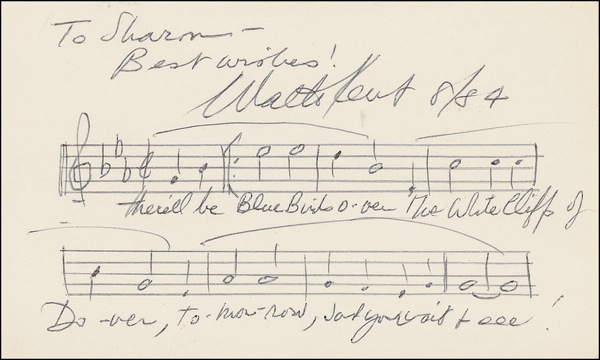 To Sharon –
Best wishes!
Walter Kent 8/84
there'll be Blue Birds o-ver The White Cliffs of
Do-ver, to-mor-row, just you wait & see!